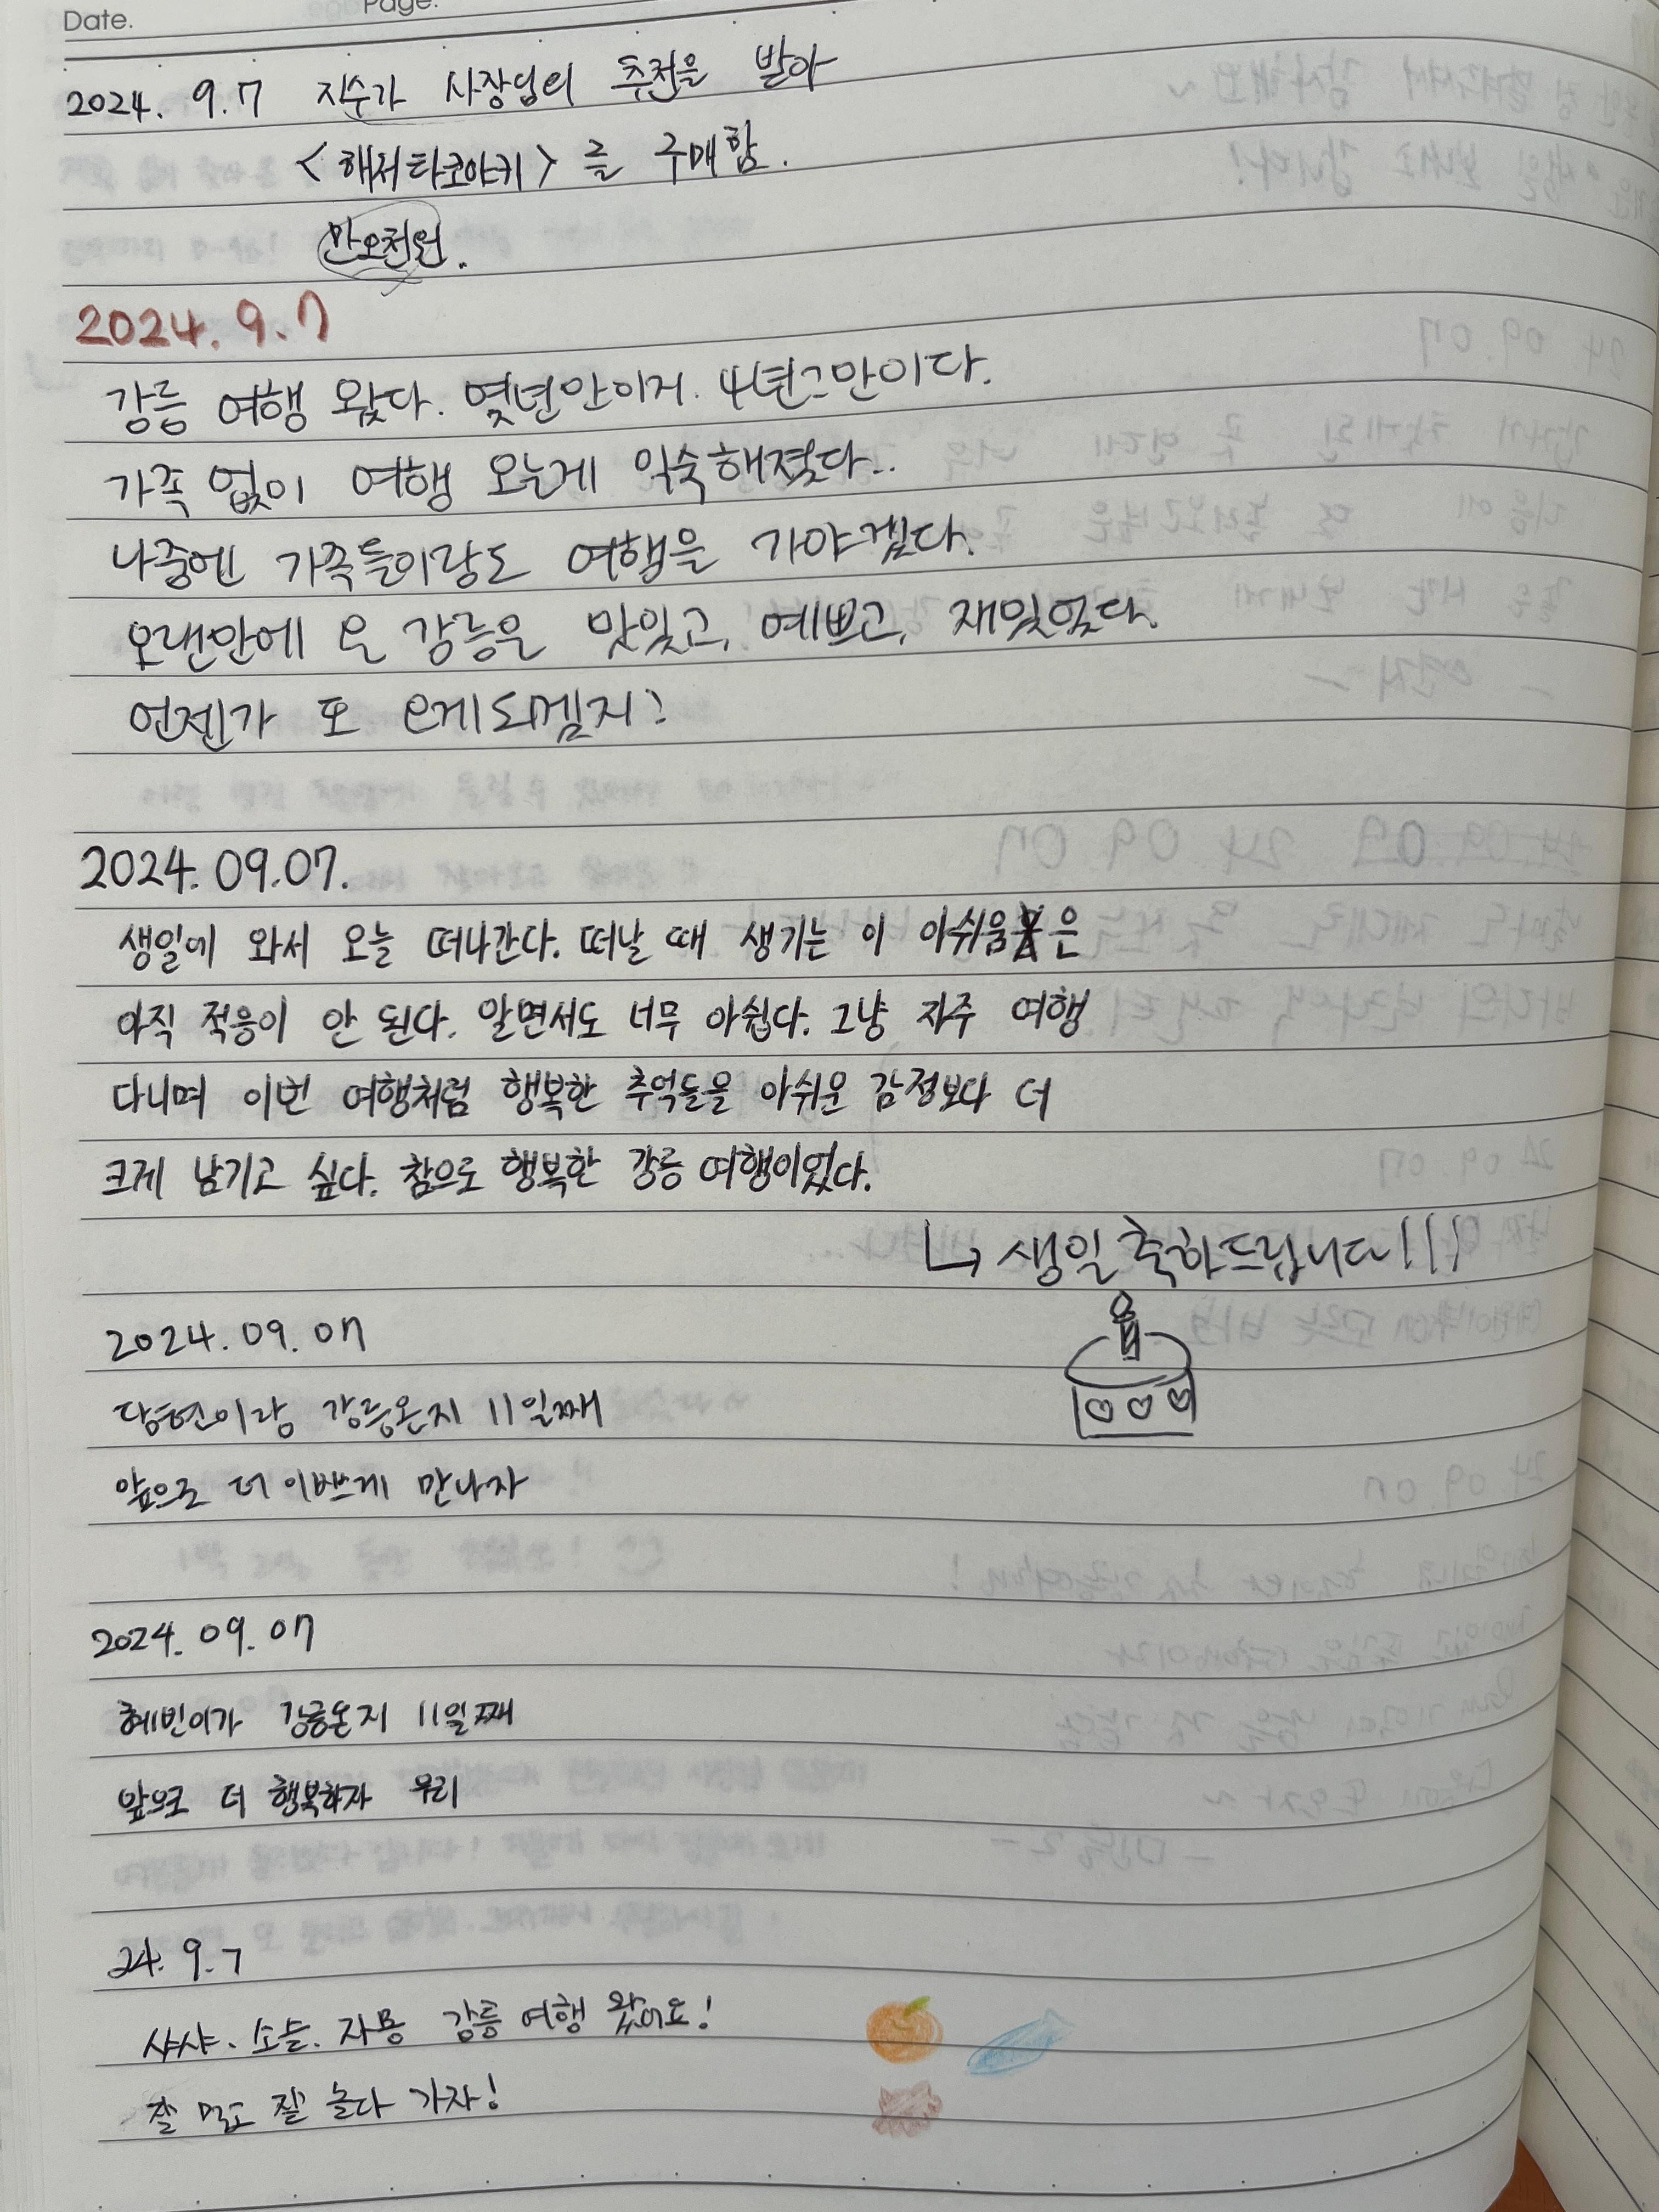 Date.
Page.
2024. 9.7 지수가 사장님의 추천을 받아
<해저타코야키>를 구매함.
만오천원.
2024. 9.7
강릉 여행 왔다. 몇년만이지. 4년그만이다.
가족 없이 여행 오는게 익숙해졌다..
나중엔 가족들이랑도 여행을 가야겠다.
오랜만에 온 강릉은 맛있고, 예쁘고, 재밌었다.
언젠가 또 오게되겠지?
2024.09.07.
생일에 와서 오늘 떠나간다. 떠날 때 생기는 이 아쉬움은
아직 적응이 안 된다. 알면서도 너무 아쉽다. 그냥 자주 여행
다니며 이번 여행처럼 행복한 추억들을 아쉬운 감정보다 더
크게 남기고 싶다. 참으로 행복한 강릉 여행이었다.
↳ 생일축하드립니다!!!
2024.09.07
당현이랑 강릉온지 11일째
앞으로 더 이쁘게 만나자
2024.09.07
혜빈이가 강릉온지 11일째
앞으로 더 행복하자 우리
24.9.7
샤샤. 소슬. 자몽 강릉 여행 왔어요!
잘 먹고 잘 놀다 가자!